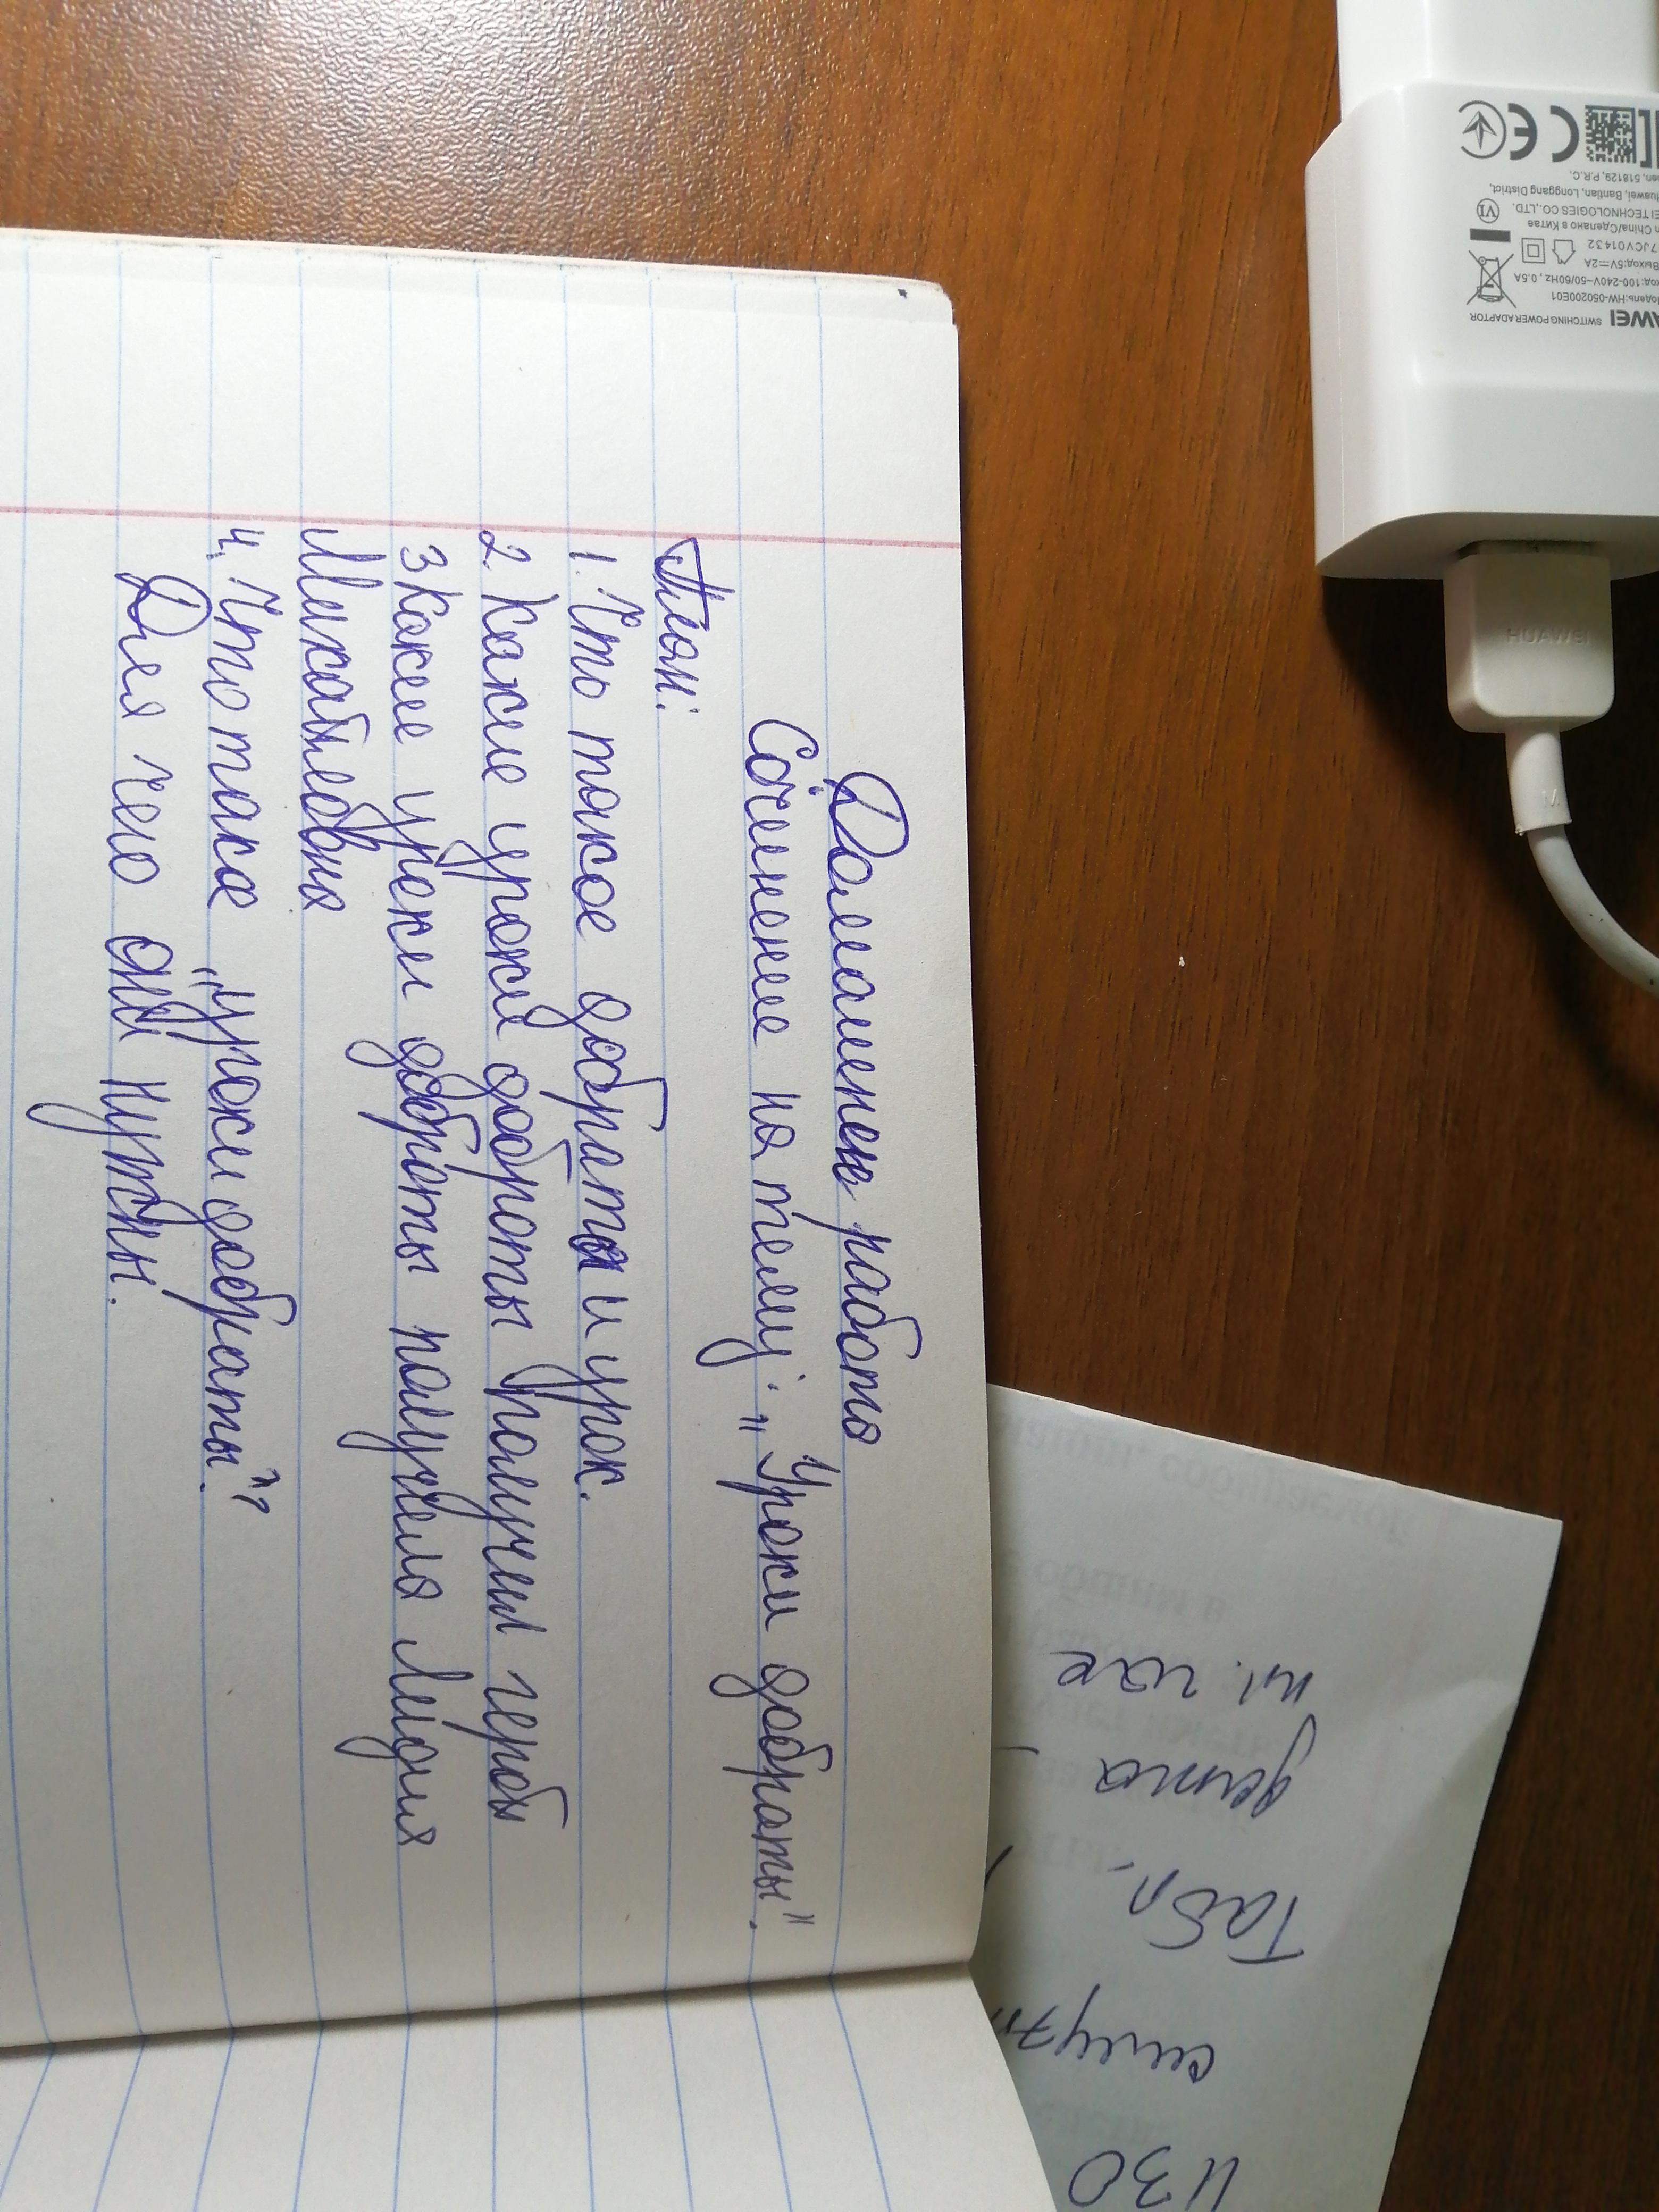 Домашнея работа
Сочинение на тему: „Уроки доброты".
План:
1. Что такое доброта и урок.
2. Какие уроки доброты получил герой
3 Какие уроки доброты получила Лидия
Михайловна
4. Что такое „уроки доброты"?
Для чего они нужны.
пл. как
дата
Табл.
ИЗО
HUAWEI
SWITCHING POWER ADAPTOR
HW-050200E01
100-240V~50/60Hz, 0.5A
Выход:5V⎓2A
7JCV01432
China/Сделано в Китае
TECHNOLOGIES CO.,LTD.
Bantian, Longgang District,
518129, P.R.C.
CE
VI